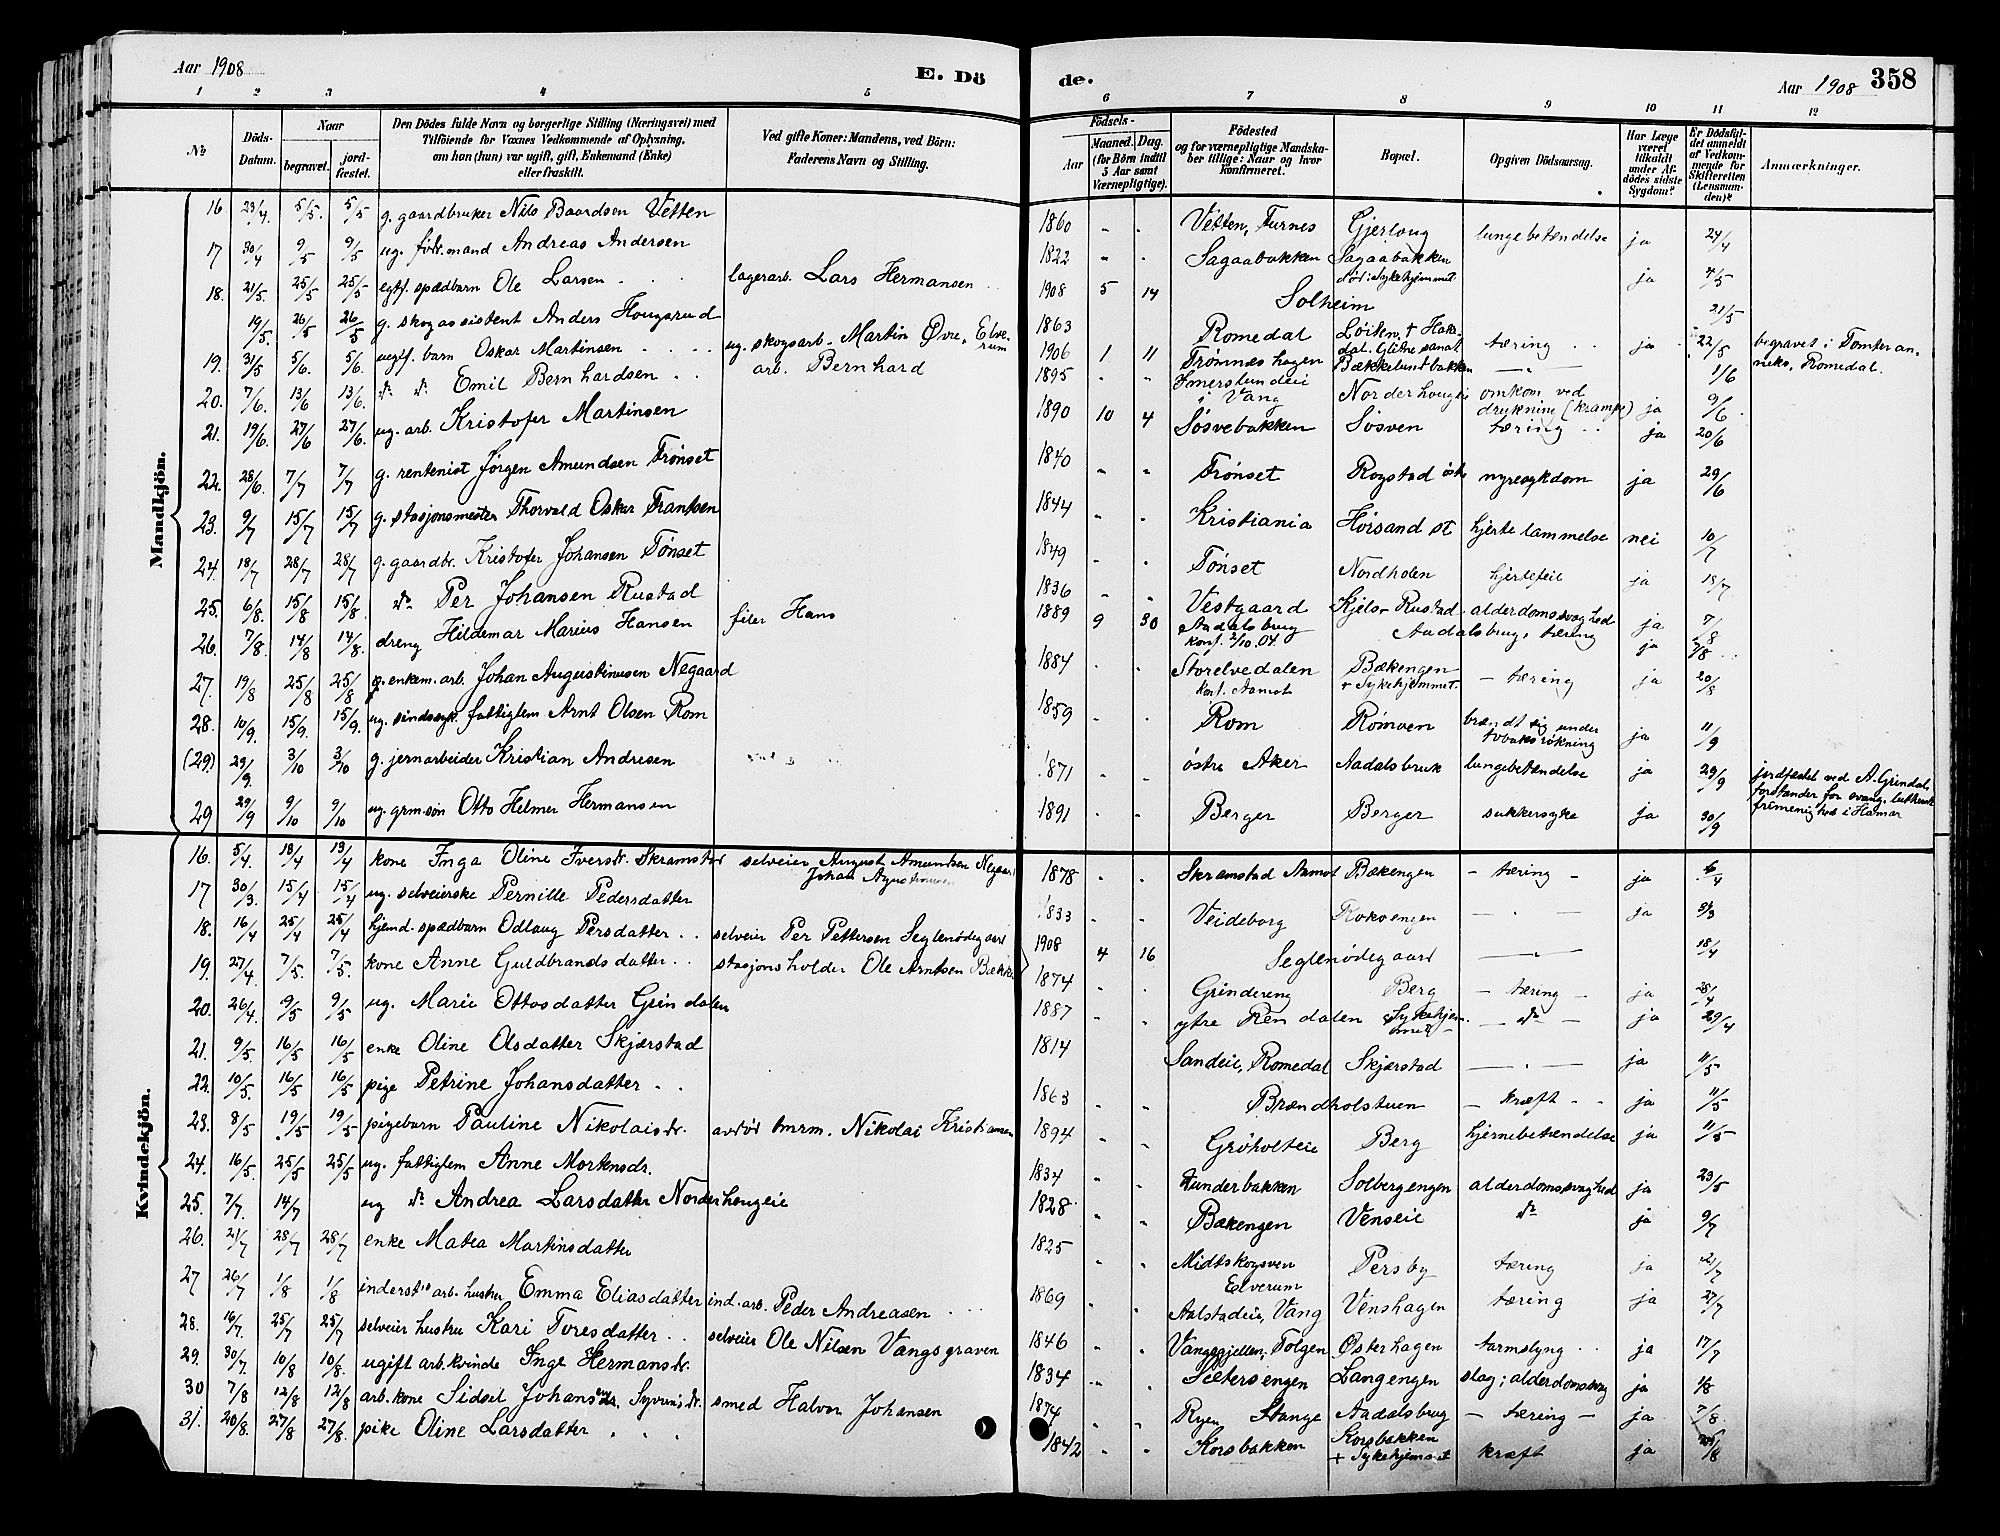 Aar 1908
E. Dö
de.
Aar 1908
358
1 2 3 4 5
6 7 8 9 10 11 12
No
Döds-Datum.
Naar
begravet.
jord-fæstet.
Den Dödes fulde Navn og borgerlige Stilling (Næringsvei) med
Tilföiende for Voxnes Vedkommende af Oplysning,
om han (hun) var ugift, gift, Enkemand (Enke)
eller fraskilt.
Ved gifte Koner: Mandens, ved Börn:
Faderens Navn og Stilling.
Födsels-
Aar
Maaned. Dag.
(for Börn indtil
5 Aar samt
Værnepligtige).
Födested
og for værnepligtige Mandska-
ber tillige: Naar og hvor
konfirmeret.
Bopæl.
Opgiven Dödsaarsag.
Har Læge
været
tilkaldt
under Af-
dödes sidste
Sygdom?
Er Dödsfal-
det anmeldt
af Vedkom-
mende for
Skifteretten
(Lensman-
den)?
Anmærkninger.
Mandkjön.
16 23/4. 5/5. 5/5 g. gaardbruker Nils Baardsen Vetten 1860 " " Vetten, Furnes Gjerlaug lungebetændelse ja 24/4
17 30/4 9/5 9/5 ug. födr.mand Andreas Andersen 1822 " " Sagaabakken Sagaabakken ja 4/5
18. 21/5. 25/5 25/5 egtf. spædbarn Ole Larsen lagerarb. Lars Hermansen 1908 5 14 Solheim 21/5
19/5. 26/5 26/5 g. skogassistent Anders Hougsrud 1863 Romedal Löiten, + Hakadal. Glitne sanat. tæring ja 22/5 begravet i Tomter anneks, Romedal.
19. 31/5 5/6. 5/6. uegtf. barn Oskar Martinsen ug. skogsarb. Martin Øvre, Elverum 1906 1 11 Trønnes hagen Bækkelundbakken — " — 1/6
20. 7/6. 13/6 13/6. do do Emil Bernhardsen arb. Bernhard 1895 " " Imerslundeie i Vang Norderhougeie omkom ved drukning (krampe) ja 9/6
21. 19/6. 27/6 27/6. ug. arb. Kristofer Martinsen 1890 10 4 Søsvebakken Søsven tæring ja 20/6
22. 28/6. 7/7 7/7 g. rentenist Jørgen Amundsen Trønset 1840 " " Trønset Rogstad østre nyresykdom ja 29/6
23. 9/7 15/7 15/7 g. stasjonsmester Thorvald Oskar Frantsen 1844 " " Kristiania Hörsand st hjertelammelse nei 10/7
24. 18/7 28/7 28/7 g. gaardbr. Kristofer Johansen Tønset 1849 " " Tønset Nordholen hjertefeil ja 18/7
25. 6/8. 15/8 15/8. do Per Johansen Rustad 1836 " " Vestgaard Kjels- Rustad alderdomssvaghed ja 7/8
26. 7/8. 14/8 14/8. dreng Hildemar Marius Hansen filer Hans 1889 9 30 Aadalsbrug konf. 2/10.04. Aadalsbrug, tæring ja 7/8
27. 19/8 25/8 25/8 g. enkem. arb. Johan Augustinusen Negaard 1884 " " Storelvedalen konf. Aamot Bækengen + Sykehjemmet. — tæring ja 20/8
28. 10/9. 15/9. 15/9. ug. sindssyk. fattiglem Arnt Olsen Rom 1859 " " Rom Rømoen brændt sig under tobaksrökning ja 11/9
(29) 29/9. 3/10 3/10 g. jernarbeider Kristian Andresen 1871 " " østre Aker Aadalsbruk lungebetændelse ja 29/9 jordfæstet ved A. Grindal, forstander for evang. luthersk frimenighed i Hamar
29 29/9 9/10 9/10 ug. grm.søn Otto Helmer Hermansen 1891 " " Berger Berger sukkersyke ja 30/9
Kvindekjön.
16. 5/4. 13/4 13/4 kone Inga Oline Iversdr. Skramstad selveier August Amundsen Negaard Johan 1878 " " Skramstad Aamot Bækengen — tæring — ja 6/4
17 30/3. 15/4 15/4 ug. selveierske Pernille Pedersdatter 1833 " " Veideborg Rokoengen — " — ja 31/3
18. 16/4 25/4 25/4 hjemd. spædbarn Odlaug Persdatter selveier Per Pettersen Seglenødegaard 1908 4 16 Seglenødegaard — " — 18/4
19. 27/4 7/5. 7/5. kone Anne Guldbrandsdatter stasjonsholder Ole Arntsen Bække 1874 " " Grindereng Berg — tæring — ja 28/4
20. 26/4. 9/5 9/5 ug. Marie Ottosdatter Grindalen 1887 " " ytre Rendalen Sykehjemmet — do — ja 29/4
21. 9/5. 16/5 16/5 enke Oline Olsdatter Skjærstad 1814 Sandeie, Romedal Skjærstad — " — ja 11/5
22. 10/5. 16/5 16/5 pige Petrine Johansdatter 1863 " " Brændholstuen — kræft ja 11/5
23. 8/5 19/5 19/5 pigebarn Pauline Nikolaisdr. avdød tmrm. Nikolai Kristiansen 1894 " " Grøholteie Berg hjernebetændelse ja 11/5
24. 16/5. 25/5 25/5 ug. fattiglem Anne Mortensdr. 1834 " " Hunderbakken Solbergengen alderdomssvaghed ja 23/5
25. 7/7. 14/7 ug do Andrea Larsdatter Norderhougeie 1828 " " Bækengen Venseie do ja 9/7
26. 21/7 28/7 28/7 enke Matea Martinsdatter 1825 " " Midtskogsven Elverum Persby tæring ja 21/7
27 26/7 1/8 1/8 inderst arb. hustru Emma Eliasdatter ind. arb. Peder Andreasen 1869 " " Aalstadeie, Vang Venshagen tæring ja 27/7
28. 16/7. 25/7 25/7 selveier hustru Kari Toresdatter selveier Ole Nilsen Vangsgraven 1846 " " Vangsgjellen, Tolgen Østerhagen tarmslyng ja 17/7
29. 30/7. 10/8 10/8. ugift arb. kvinde Inge Hermansdr. 1834 " " Sætersengen Langengen slag; alderdomssvag ja 1/8
30 7/8 12/8 12/8 arb. kone Sidsel Syversdr. smed Halvor Johansen 1874 " " Ryen Stange Aadalsbrug — tæring — ja 7/8
31. 20/8. 27/8 27/8. pike Oline Larsdatter 1842 " " Korsbakken Korsbakken + Sykehjemmet kræft ja